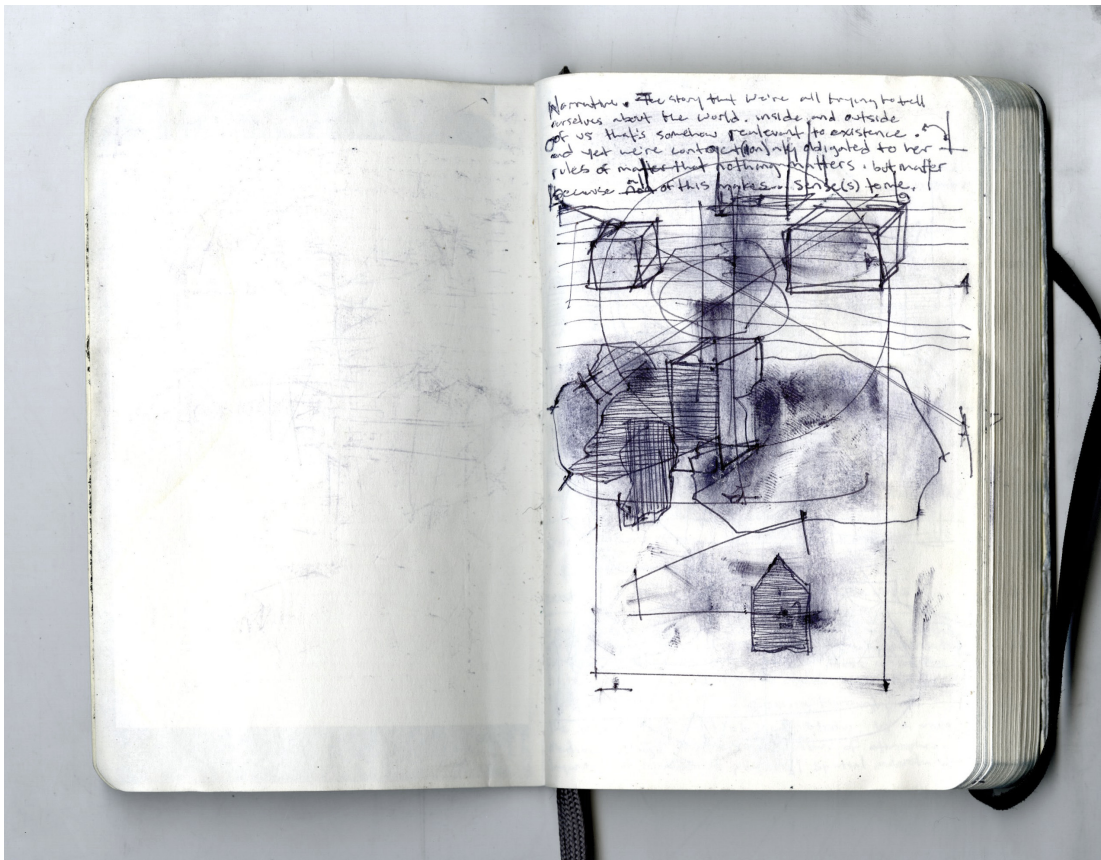 Narrative. The story that we're all trying to tell
ourselves about the world. inside and outside
of us that's somehow renlevant to existence.
and yet we're obligated to her
rules of matter that nothing matters. but matter
because of this makes... sense(s) to me.